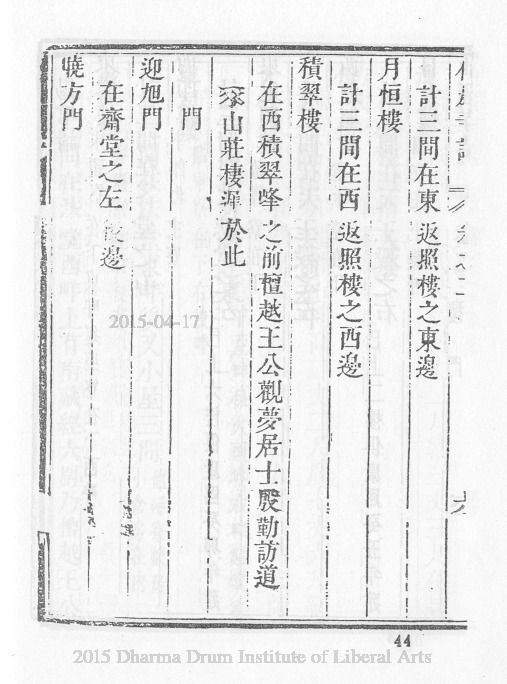 計三間在東返照樓之東邊
月恒樓
計三間在西返照樓之西邊
積翠樓
在西積翠峰之前檀越王公觀夢居士殷勤訪道
山莊棲遲於此
門
迎旭門
在齋堂之左邊
曉方門
2015-04-17
44
2015 Dharma Drum Institute of Liberal Arts